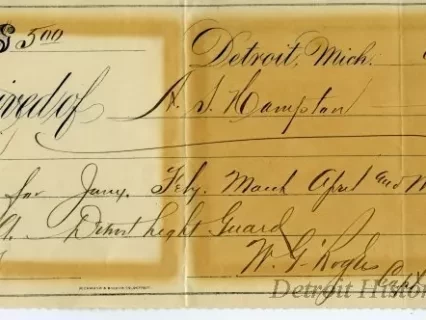 $ 5.00 Detroit, Mich.
ived of A. S. Hampton
for Jany. Feby. March April and M
Detroit Light Guard
W. G. Rogers Capt
Detroit Histor